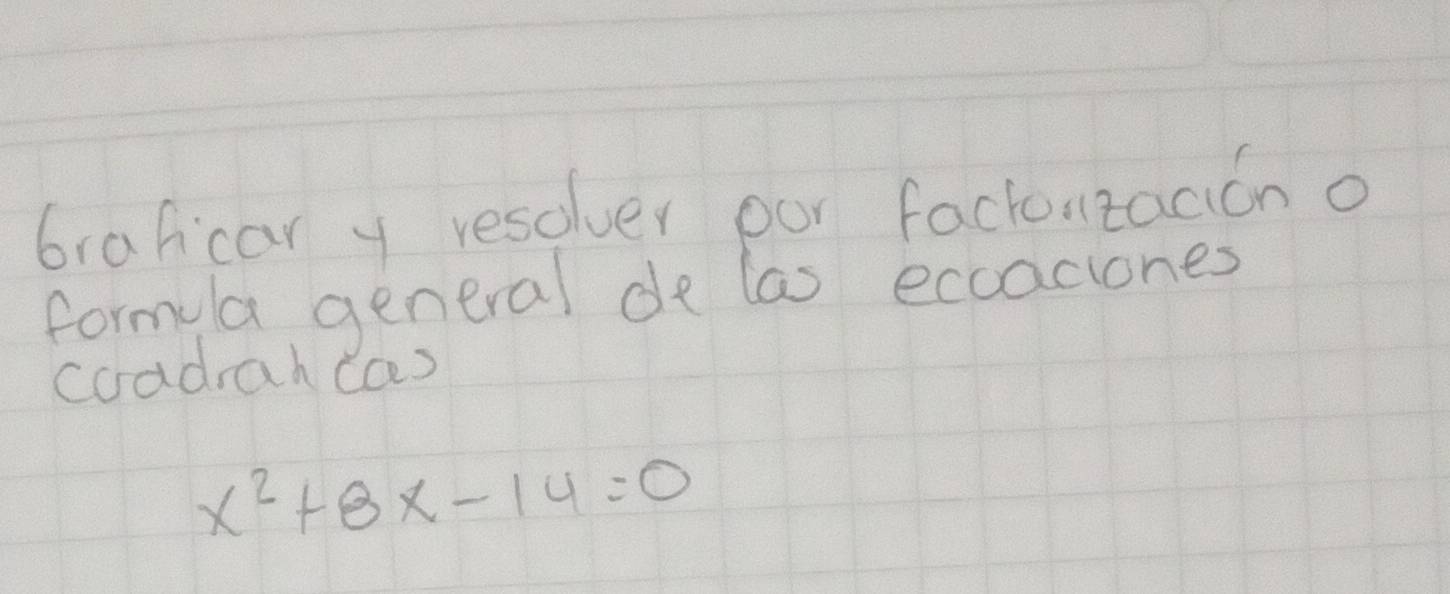 Graficar y resolver por factorización o
formula general de las ecuaciones
cuadraticas
x²+8x-14=0